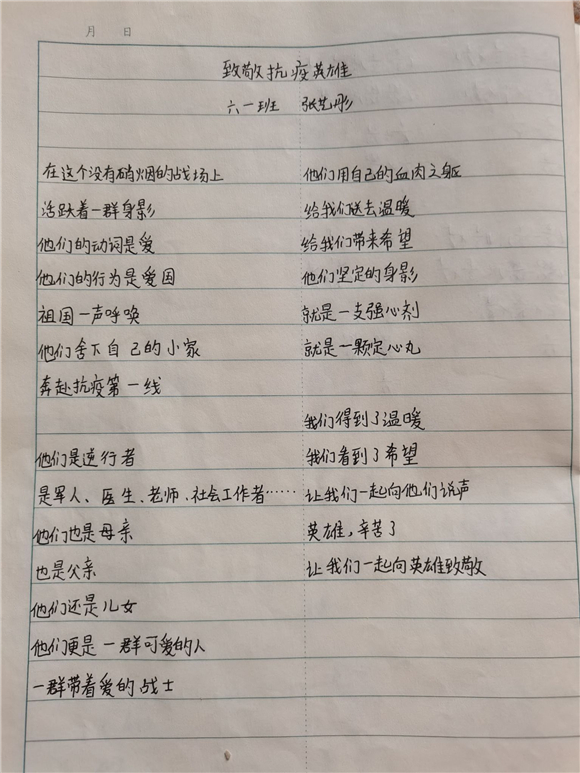 月 日
致敬抗疫英雄
六一班 张艺彤
在这个没有硝烟的战场上
活跃着一群身影
他们的动词是爱
他们的行为是爱国
祖国一声呼唤
他们舍下自己的小家
奔赴抗疫第一线
他们是逆行者
是军人、医生、老师、社会工作者……
他们也是母亲
也是父亲
他们还是儿女
他们更是一群可爱的人
一群带着爱的战士
他们用自己的血肉之躯
给我们送去温暖
给我们带来希望
他们坚定的身影
就是一支强心剂
就是一颗定心丸
我们得到了温暖
我们看到了希望
让我们一起向他们说声
英雄,辛苦了
让我们一起向英雄致敬